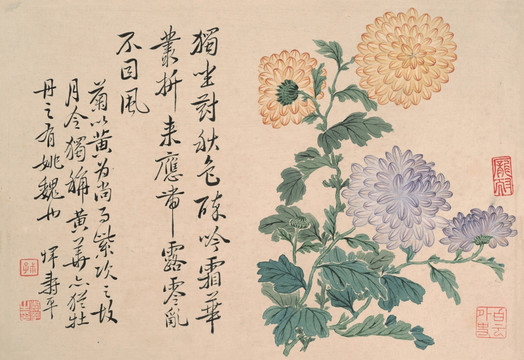 獨坐對秋色吟霜華
叢折来應带露零亂
不因風
菊以黄为尚而紫次之故
月令獨稱黄華亦猶牡
丹之有姚魏也
惲壽平
白云外史